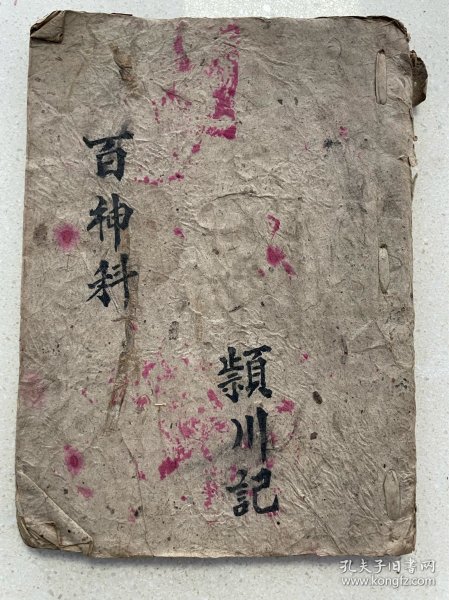 百神科
頴川記
孔夫子旧书网
www.kongfz.com